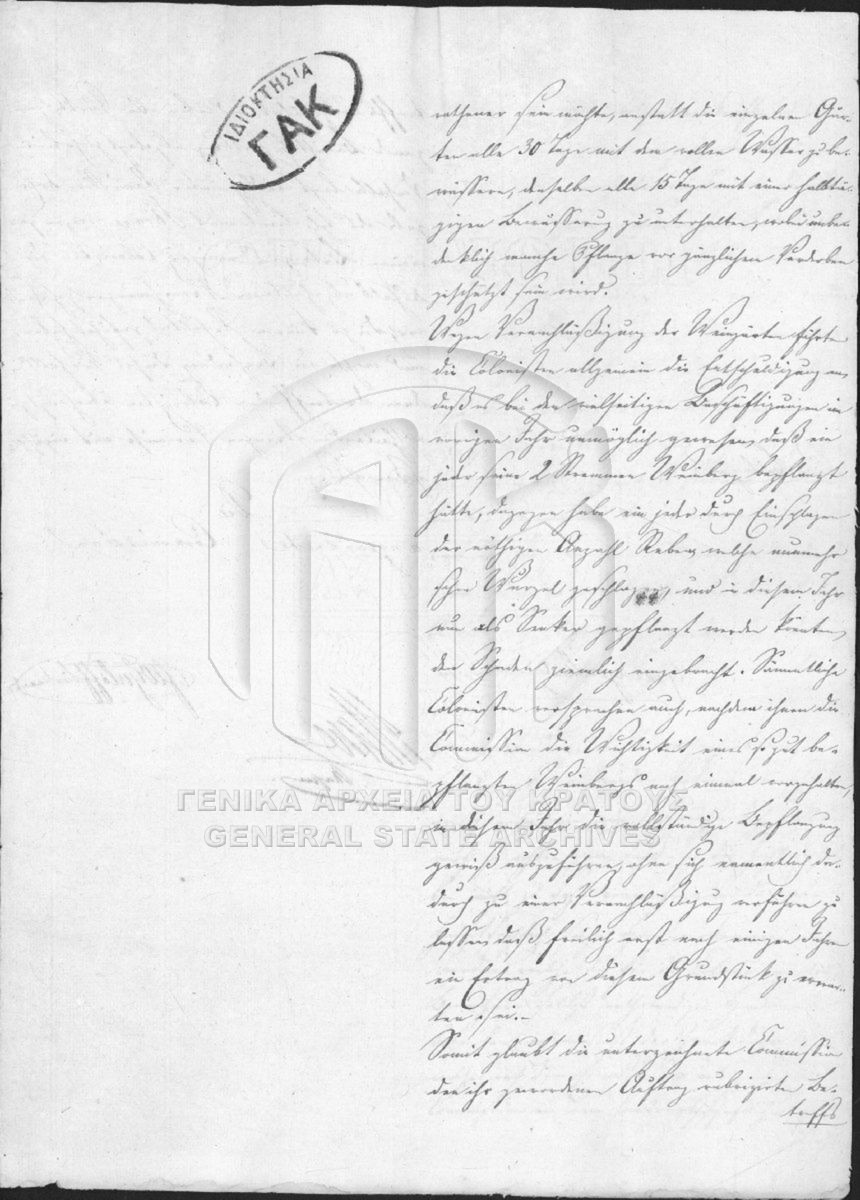 ΙΔΙΟΚΤΗΣΙΑ
ΓΑΚ
rathener sein möchte, anstatt die einzelnen Gär-
ten alle 30 Tage mit dem vollen Wasser zu be-
wässern, dieselben alle 15 Tage mit einer halbtä-
gigen Bewässerung zu unterhalten, wobei unbe-
denklich manche Pflanze vor gänzlichem Verderben
geschützt sein wird.
Wegen Vernachläßigung der Weingärten führten
die Colonisten allgemein die Entschuldigung an,
daß es bei den vielseitigen Beschäftigungen im
vorigen Jahr unmöglich gewesen, daß ein
jeder seine 2 Stremmen Weinberg bepflanzt
hätte, dagegen habe ein jeder durch Einschlagen
der nöthigen Anzahl Reben, welche nunmehr
schon Wurzel geschlagen, und in diesem Jahr
nun als Senker gepflanzt werden könnten,
den Schaden ziemlich eingebracht. Sämmtliche
Colonisten versprachen auch, nachdem ihnen die
Commission die Wichtigkeit eines so gut be-
pflanzten Weinbergs noch einmal vorgehalten,
in diesem Jahr die vollständige Bepflanzung
gewiß auszuführen, ohne sich namentlich da-
durch zu einer Vernachläßigung verführen zu
lassen, daß freilich erst nach einigen Jahren
ein Ertrag von diesem Grundstück zu erwar-
ten sei.-
Somit glaubt die unterzeichnete Commission
den ihr gewordenen Auftrag rubrizirten Be-
treffs
ΓΕΝΙΚΑ ΑΡΧΕΙΑ ΤΟΥ ΚΡΑΤΟΥΣ
GENERAL STATE ARCHIVES